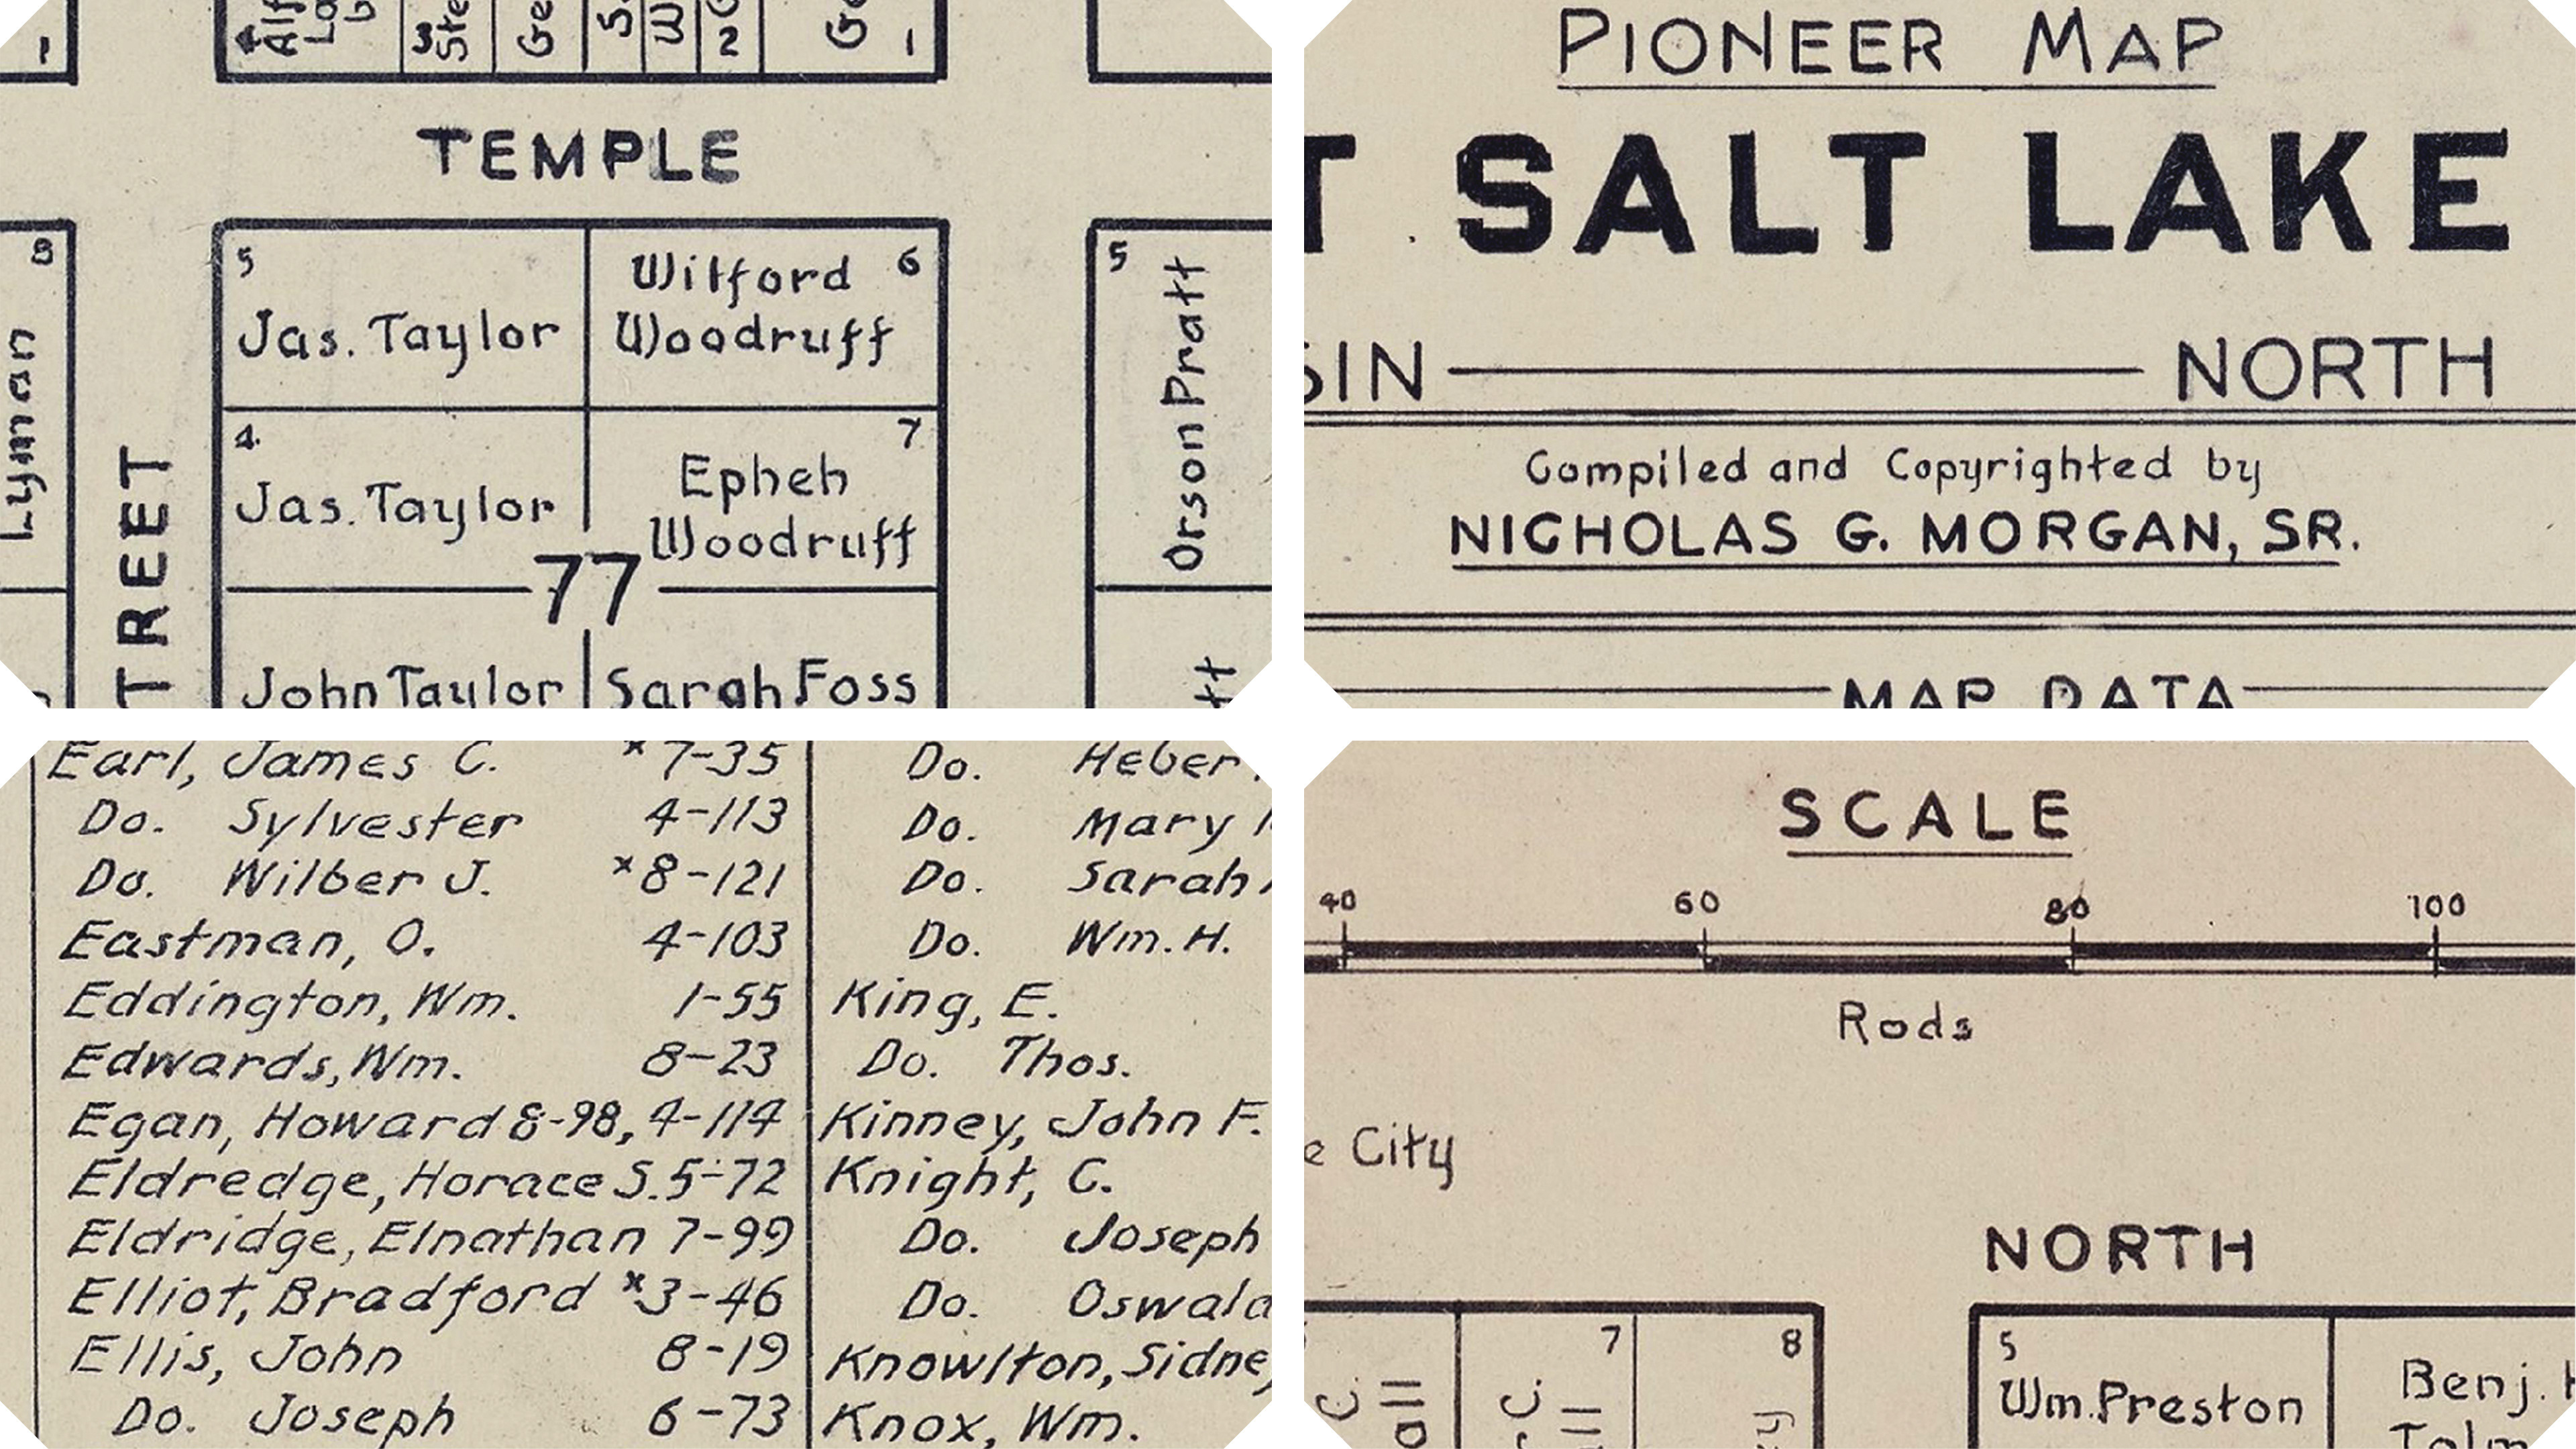 TEMPLE
5
Jas. Taylor
Wilford 6
Woodruff
4
Jas. Taylor
7
Epheh
Woodruff
77
John Taylor
Sarah Foss
8
Lyman
TREET
5
Orson Pratt
PIONEER MAP
T SALT LAKE
SIN NORTH
Compiled and Copyrighted by
NICHOLAS G. MORGAN, SR.
MAP DATA
Earl, James C. x7-35
Do. Sylvester 4-113
Do. Wilber J. x8-121
Eastman, O. 4-103
Eddington, Wm. 1-55
Edwards, Wm. 8-23
Egan, Howard 8-98, 4-114
Eldredge, Horace S. 5-72
Eldridge, Elnathan 7-99
Elliot, Bradford x3-46
Ellis, John 8-19
Do. Joseph 6-73
Do. Heber
Do. Mary
Do. Sarah
Do. Wm. H.
King, E.
Do. Thos.
Kinney, John F.
Knight, C.
Do. Joseph
Do. Oswald
Knowlton, Sidney
Knox, Wm.
SCALE
40 60 80 100
Rods
e City
NORTH
7
8
5
Wm. Preston
Benj.